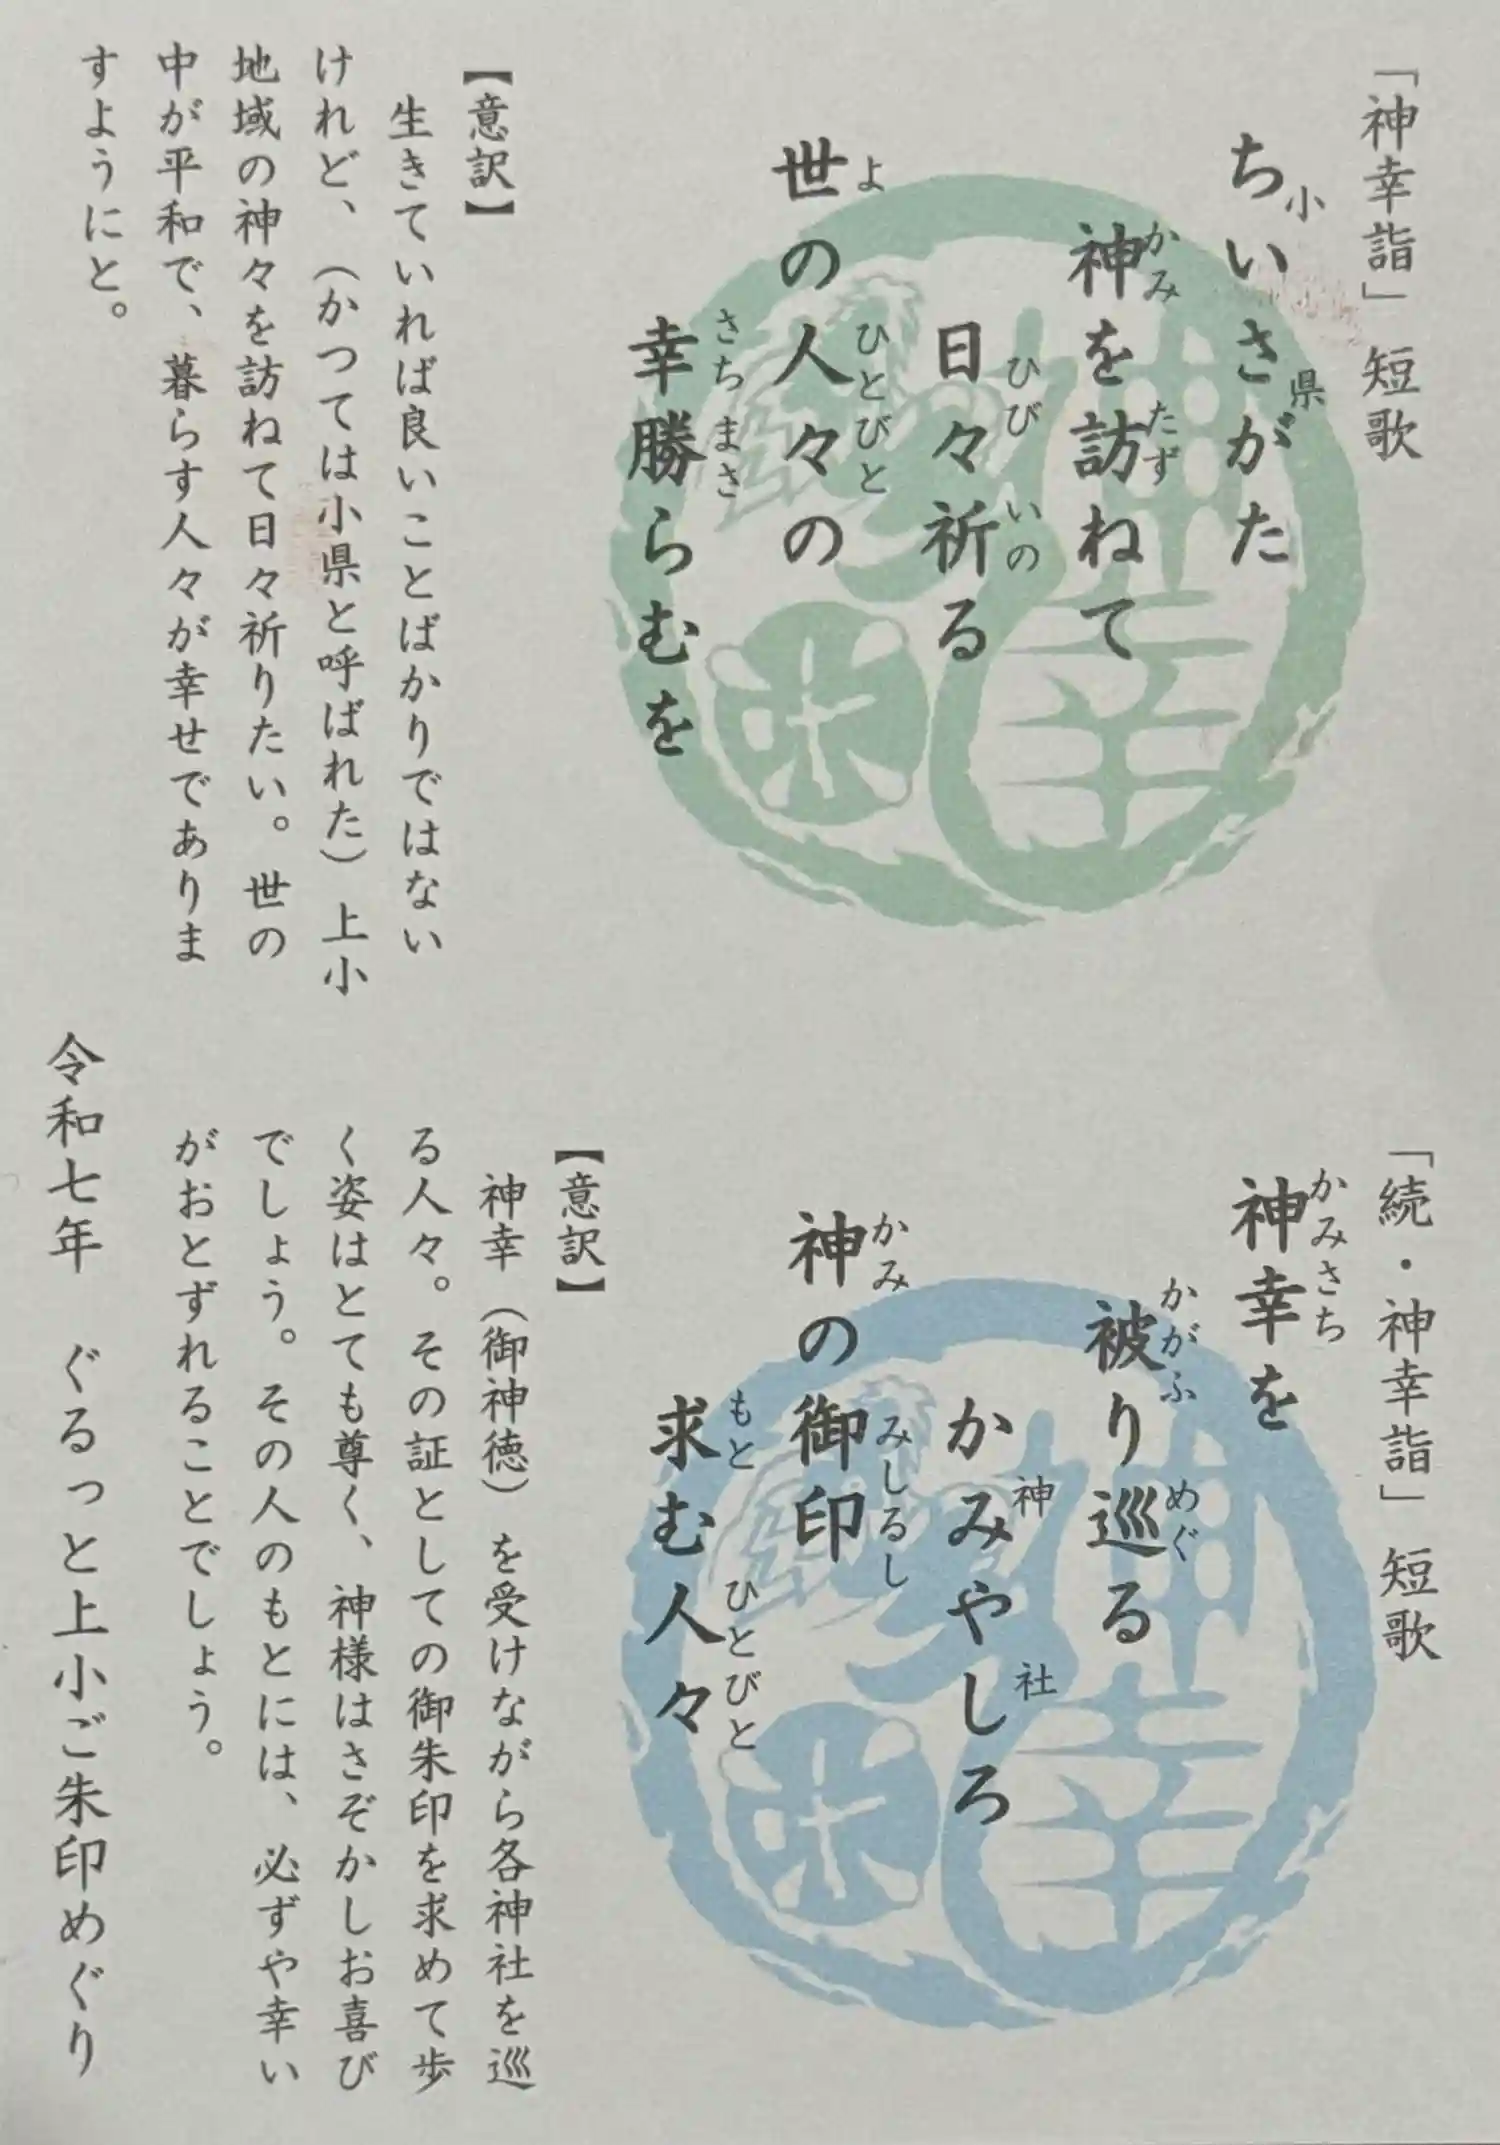 「神幸詣」短歌
ちいさがた
神を訪ねて
日々祈る
世の人々の
幸勝らむを
【意訳】
生きていれば良いことばかりではない
けれど、（かつては小県と呼ばれた）上小
地域の神々を訪ねて日々祈りたい。世の
中が平和で、暮らす人々が幸せでありま
すようにと。
「続・神幸詣」短歌
神幸を
被り巡る
かみやしろ
神の御印
求む人々
【意訳】
神幸（御神徳）を受けながら各神社を巡
る人々。その証としての御朱印を求めて歩
く姿はとても尊く、神様はさぞかしお喜び
でしょう。その人のもとには、必ずや幸い
がおとずれることでしょう。
令和七年 ぐるっと上小ご朱印めぐり